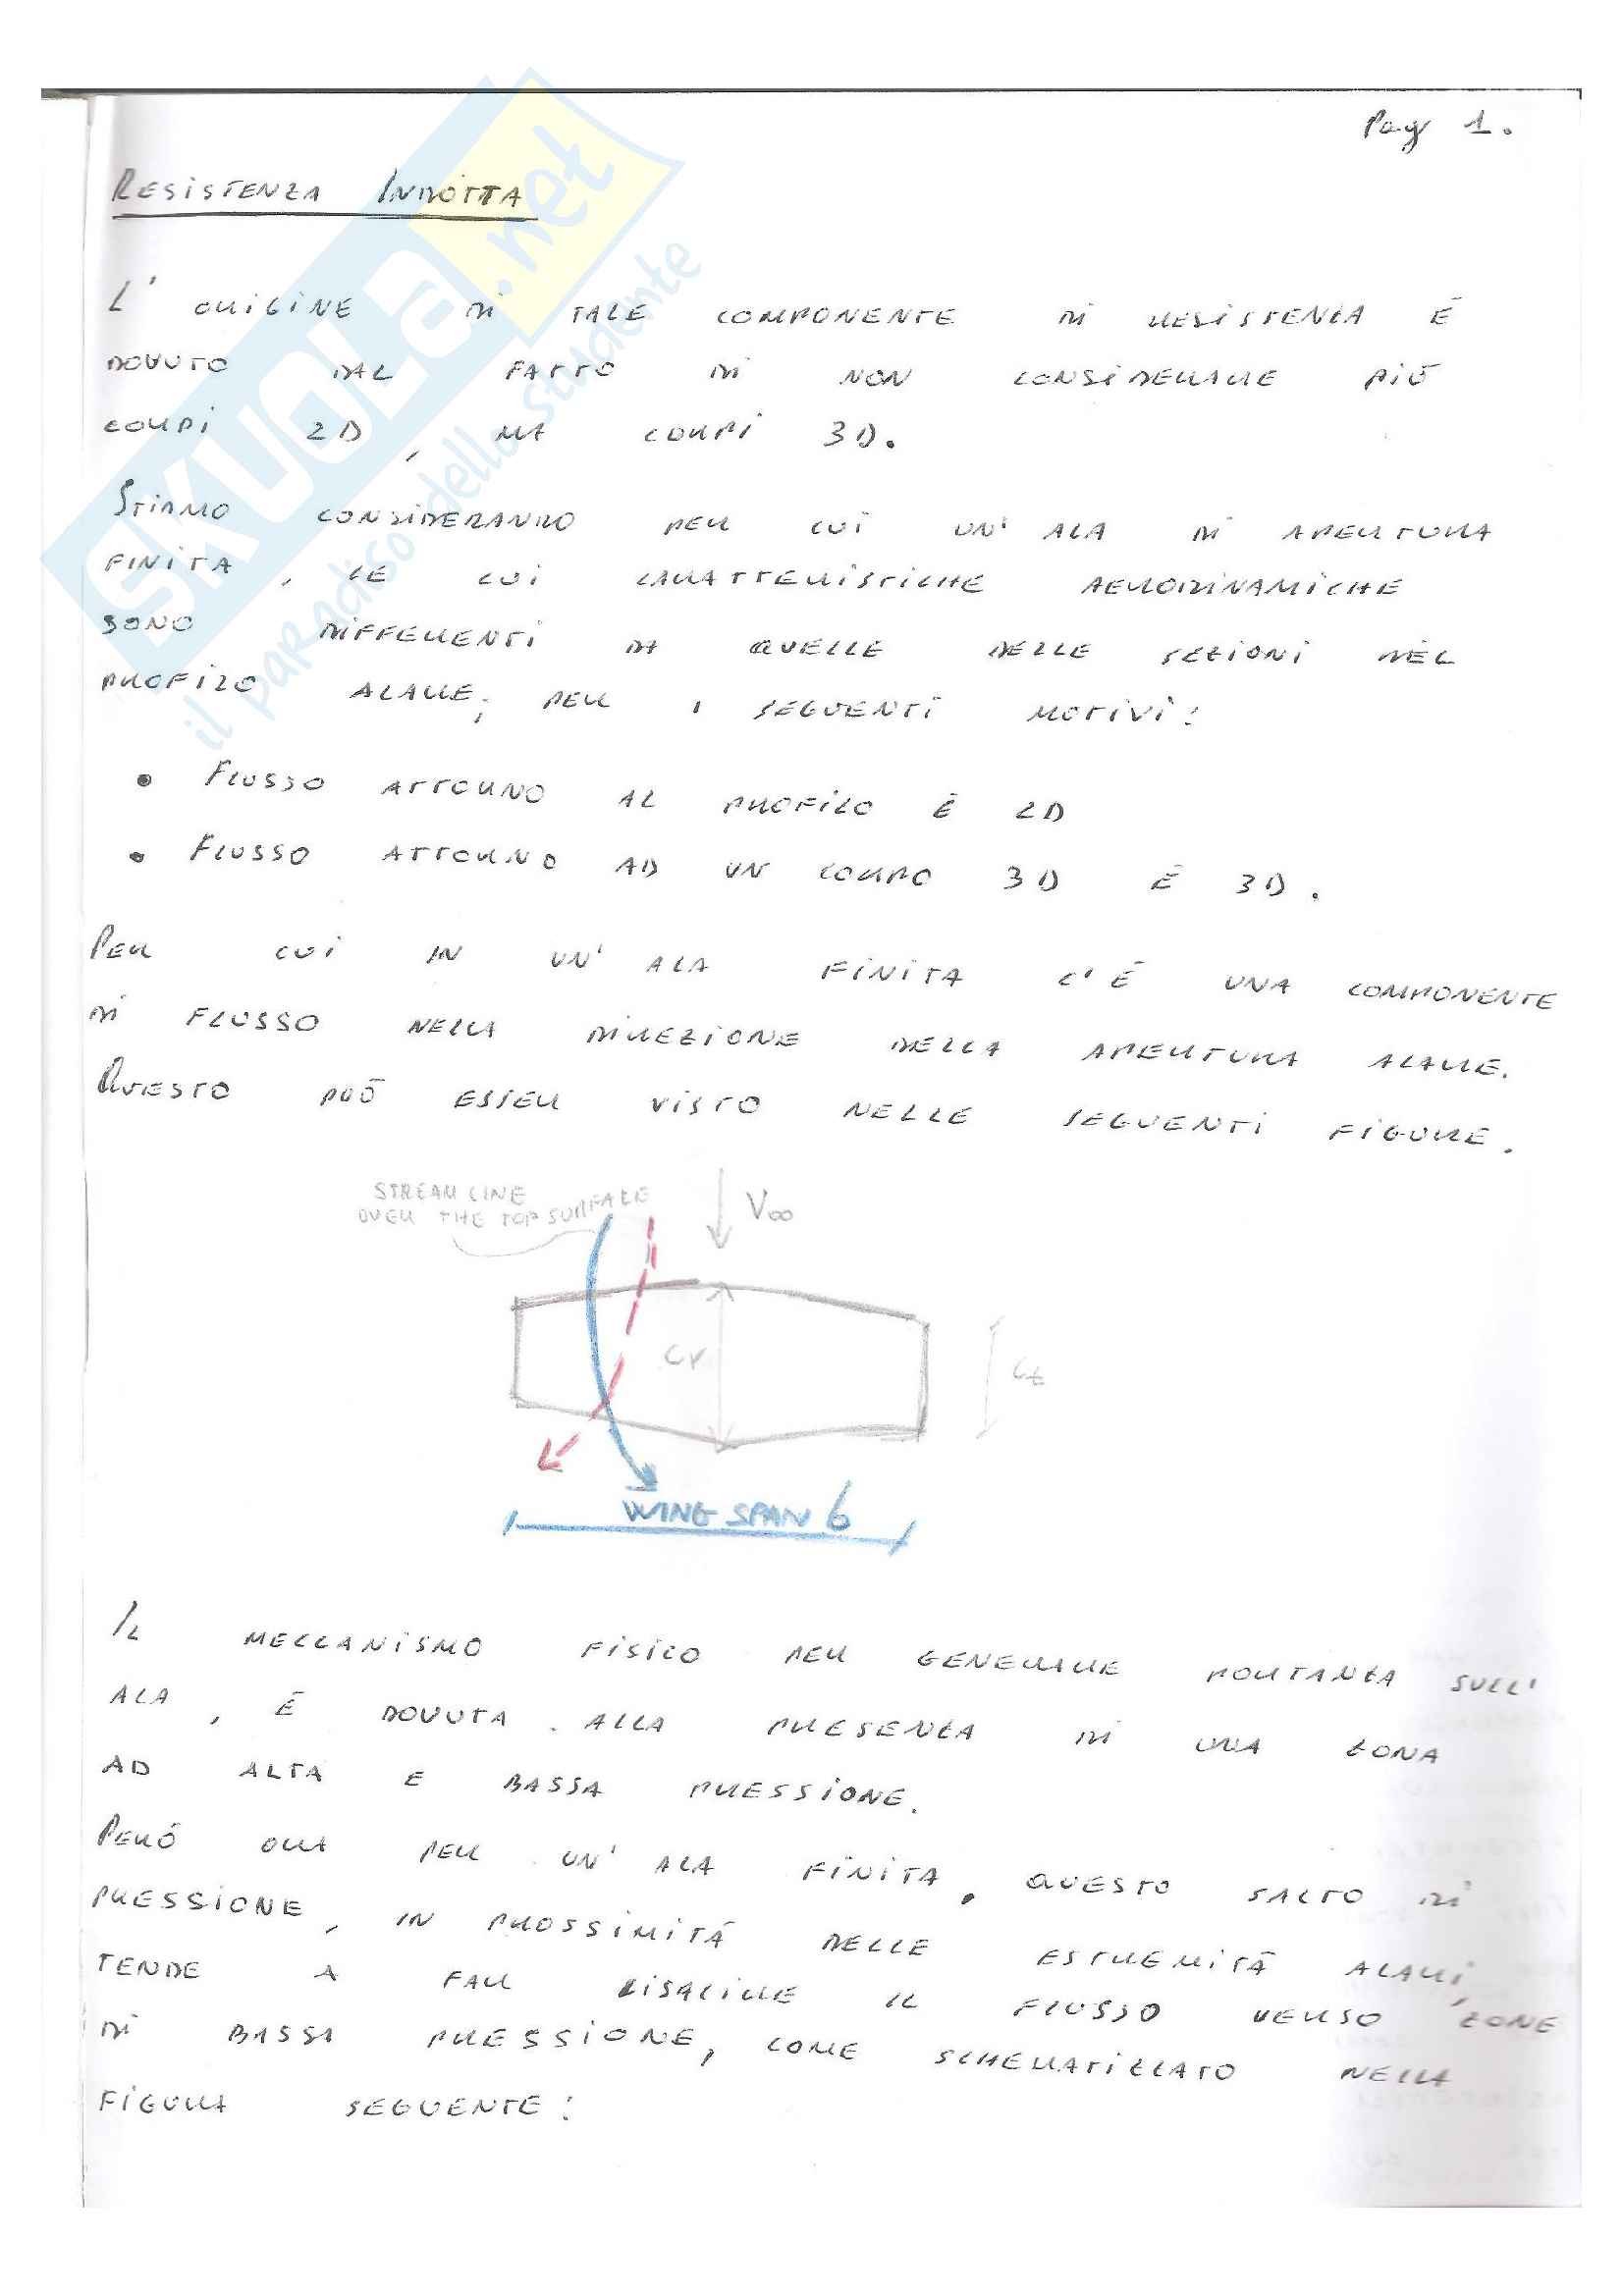 Pag 1.
RESISTENZA INDOTTA
L' ORIGINE DI TALE COMPONENTE DI RESISTENZA É
DOVUTO DAL FATTO DI NON CONSIDERARE PIÚ
CORPI 2D, MA CORPI 3D.
STIAMO CONSIDERANDO PER CUI UN' ALA DI APERTURA
FINITA, LE CUI CARATTERISTICHE AERODINAMICHE
SONO DIFFERENTI DA QUELLE DELLE SEZIONI DEL
PROFILO ALARE; PER I SEGUENTI MOTIVI:
• FLUSSO ATTORNO AL PROFILO É 2D
• FLUSSO ATTORNO AD UN CORPO 3D É 3D.
PER CUI IN UN' ALA FINITA C'É UNA COMPONENTE
DI FLUSSO NELLA DIREZIONE DELLA APERTURA ALARE.
QUESTO PUÓ ESSER VISTO NELLE SEGUENTI FIGURE.
STREAM LINE
OVER THE TOP SURFACE
V∞
Cr
Ct
WING SPAN b
IL MECCANISMO FISICO PER GENERARE PORTANZA SULL'
ALA, É DOVUTA ALLA PRESENZA DI UNA ZONA
AD ALTA E BASSA PRESSIONE.
PERÓ ORA PER UN' ALA FINITA, QUESTO SALTO DI
PRESSIONE, IN PROSSIMITÁ DELLE ESTREMITÁ ALARI,
TENDE A FAR RISALIRE IL FLUSSO VERSO ZONE
DI BASSA PRESSIONE, COME SCHEMATIZZATO NELLA
FIGURA SEGUENTE:
SKUOLA.net
il paradiso dello studente